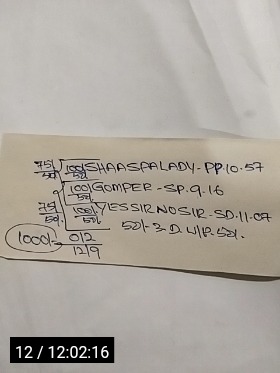 75/50 100/50 SHAASPALADY-PP.10.57
100/50 GOMPER-SP.9.16
75/50 100/50 YESSIRNOSIR-SD.11.07
50/-3.D.U/P.50/.
1000/- 012
12/9
12 / 12:02:16